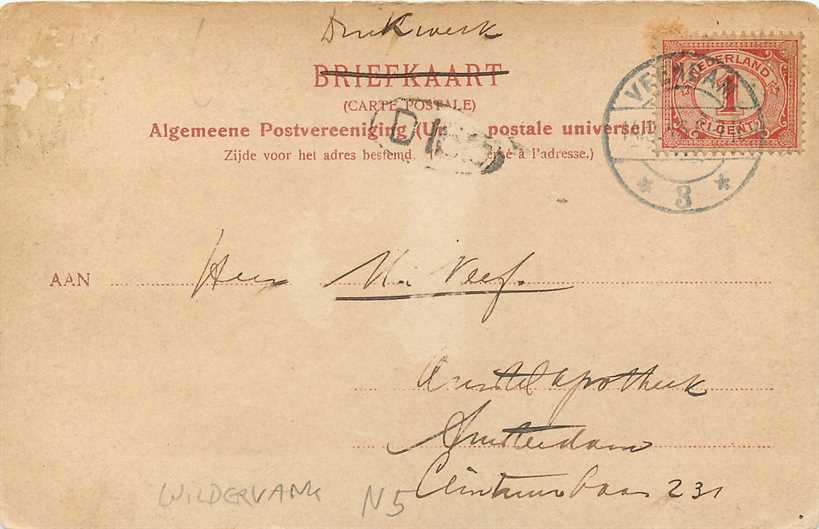 Drukwerk
BRIEFKAART
(CARTE POSTALE)
Algemeene Postvereeniging (Un postale universelle
Zijde voor het adres bestemd é à l'adresse.)
NEDERLAND
1
CENT
VEENDAM
3
AAN Heer Veef.
Amstel apotheek
Amsterdam
231
WILDERVANK N5